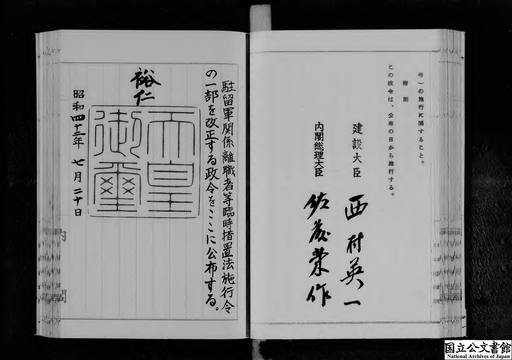 号)の施行に関すること。
附則
この政令は、公布の日から施行する。
建設大臣 西村英一
内閣総理大臣 佐藤榮作
駐留軍関係離職者等臨時措置法施行令
の一部を改正する政令をここに公布する。
裕仁
天皇
御璽
昭和四十二年 七月二十日
国立公文書館
National Archives of Japan